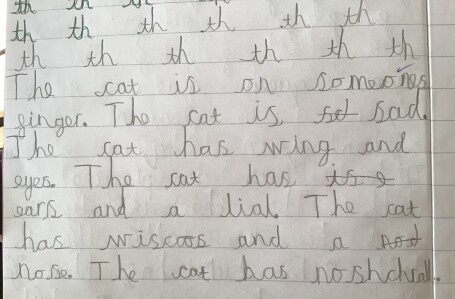 th th th th th th
th th th th th th th
The cat is on someones
ginger. The cat is sad.
The cat has wing and
eyes. The cat has
ears and a lial. The cat
has wiscors and a
nose. The cat has